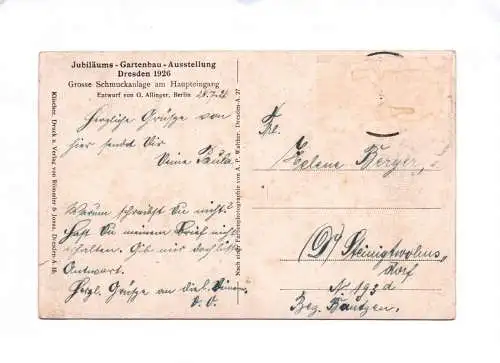 Jubiläums-Gartenbau-Ausstellung
Dresden 1926
Grosse Schmuckanlage am Haupteingang
Entwurf von G. Allinger, Berlin
28.7.26
Herzliche Grüsze von
hier sendet Dir
Deine Paula.
Warum schreibst Du nicht?
Hast Du meinen Brief nicht
erhalten. Gib mir doch bitte
Antwort.
Herzl. Grüsze an die l.
D. O.
Klischee, Druck u. Verlag von Römmler & Jonas, Dresden-A. 16.
Nach einer Farbenphotographie von A. P. Walther, Dresden-A. 27
Frl.
Helene Berger,
Steinigtwolms„
dorf
Nr. 193 d
Bez. Bautzen.